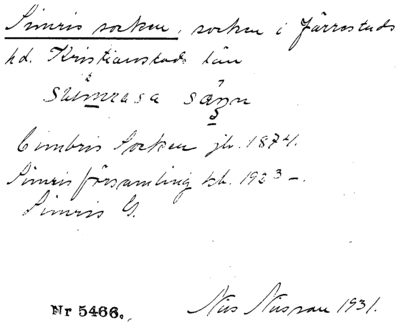 Simris socken, socken i Järrestads
hd. Kristianstads län
Cimbris Socken jb. 1874.
Simris församling kb. 1923 –.
Simris G.
Nr 5466. Nils 1931.